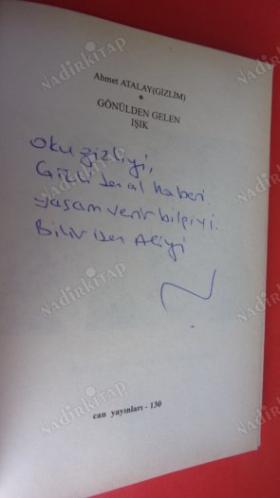 Ahmet ATALAY(GİZLİM)
GÖNÜLDEN GELEN
IŞIK
Oku gizliyi,
Gizli den al haberi
yaşam verir bilgiyi.
Bilir isen Aliyi
can yayınları - 130
NADİRKİTAP